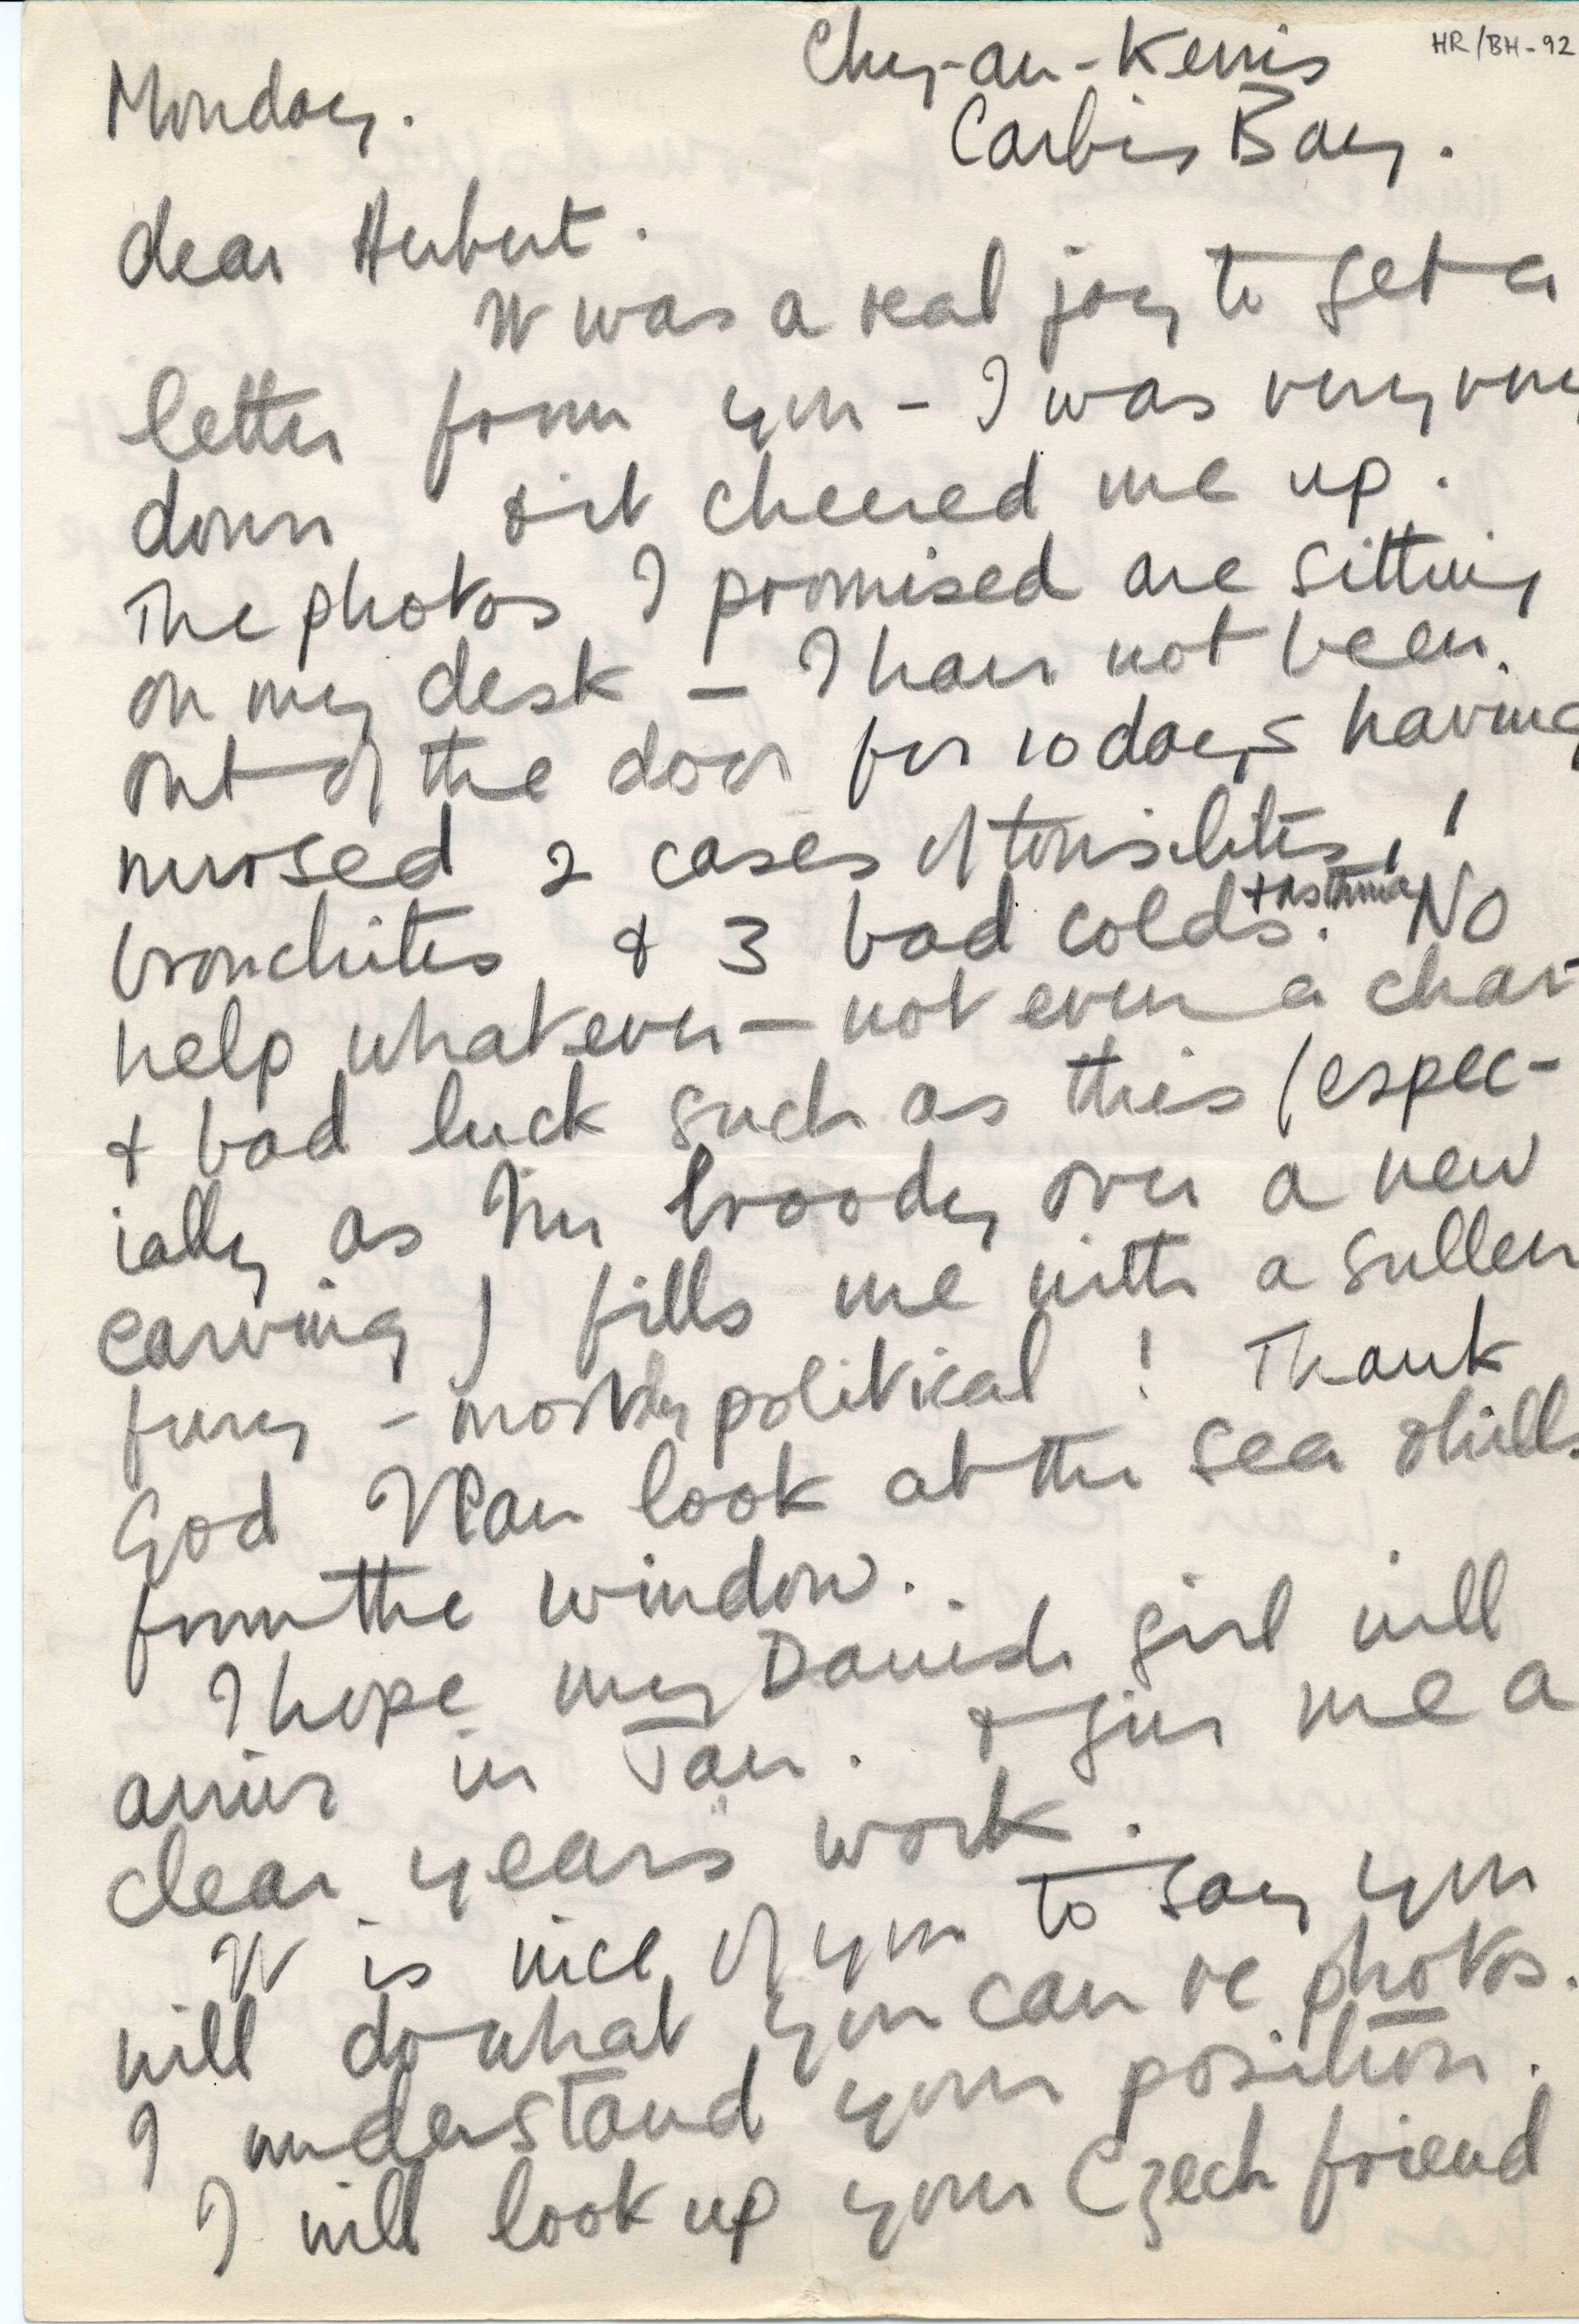 HR/BH-92
Chy-an-Kerris
Monday.
Carbis Bay.
dear Herbert.
It was a real joy to get a
letter from you – I was very very
down & it cheered me up.
The photos I promised are sitting
on my desk – I have not been
out of the door for 10 days having
nursed 2 cases of tonsilitis, 1
bronchitis & 3 bad colds + asthma. No
help whatever – not even a char
& bad luck such as this (espec-
ially as I'm broody over a new
carving) fills me with a sullen
fury – mostly political! Thank
God I can look at the sea & hills
from the window.
I hope my Danish girl will
arrive in Jan. & give me a
clear years work.
It is nice of you to say you
will do what you can re photos.
I understand your position.
I will look up your Czech friend